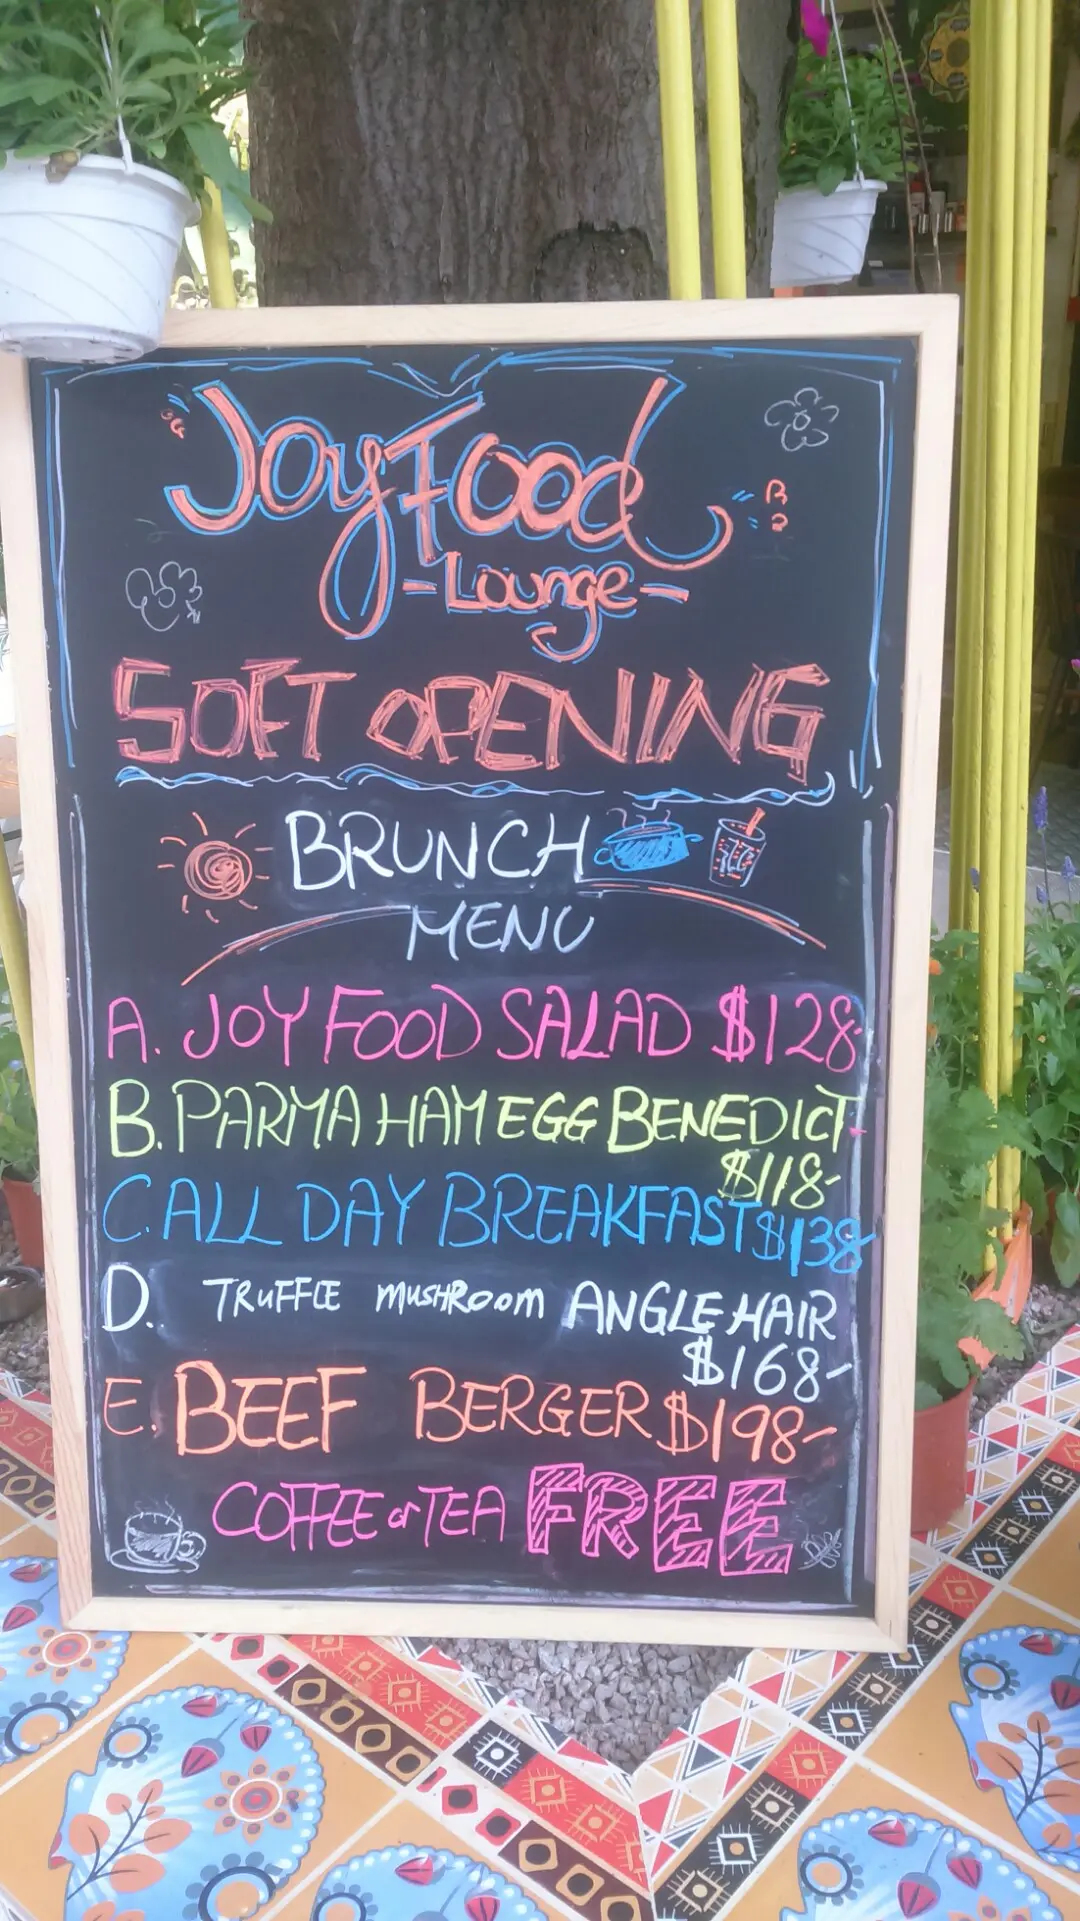 Joy Food
-Lounge-
SOFT OPENING
BRUNCH
MENU
A. JOY FOOD SALAD $128-
B. PARMA HAM EGG BENEDICT
$118-
C. ALL DAY BREAKFAST $138
D. TRUFFLE MUSHROOM ANGLE HAIR
$168-
E. BEEF BERGER $198-
COFFEE or TEA FREE